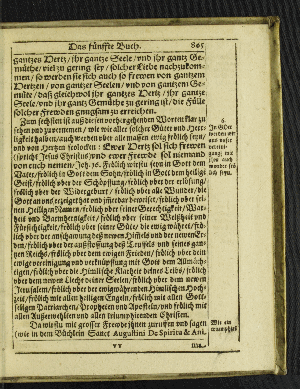 Das fünffte Buch. 805
gantzes Hertz / ihr gantze Seele / und ihr gantz Ge-
müthe / viel zu gering sey / solcher Liebe nachzukom-
men / so werden sie sich auch so frewen von gantzem
Hertzen / von gantzer Seelen / und von gantzem Ge-
müte / daß gleichwol ihr gantzes Hertz / ihr gantze
Seele / und ihr gantz Gemüthe zu gering ist / die Fülle
solcher Frewden gnugsam zu erreichen.
Zum sechsten ist auß diesen vorhergehenden Worten klar zu
sehen und zuvernemen / wie wir alle solcher Güter und Herr-
ligkeit halben / auch werden über alle massen ewig frölich seyn /
und von Hertzen frolocken: Ewer Hertz sol sich frewen
(spricht Jesus Christus) und ewre Frewde sol niemand
von euch nemen / Joh. 16. Frölich wird seyn in Gott dem
Vater / frölich in Gott dem Sohn / frölich in Gott dem heiligen
Geist / frölich über der Schöpffung / frölich über der erlösung /
frölich über der Widergeburt / frölich über alle Wunder / die
Gott an uns erzeiget hat und immerdar beweiset / frölich über sei-
nen Heiligen Namen / frölich über seiner Gerechtigkeit / War-
heit und Barmhertzigkeit / frölich über seiner Weißheit und
Fürsichtigkeit / frölich über seiner Güte / die ewig währet / frö-
lich über der anschawung deß newen Himels und der newen Er-
den / frölich über der außstossung deß Teufels und seines gan-
tzen Reichs / frölich über dem ewigen Frieden / frölich über den
ewige vereinigung und verknüpffung mit Gott dem Allmäch-
tigen / frölich über die Himlische Klarheit deines Leibs / frölich
über dem newen Liecht deiner Seelen / frölich über dem newen
Jerusalem / frölich über der ewigwährenden Himlischen Hoch-
zeit / frölich mit allen heiligen Engeln / frölich mit allen Gott-
seligen Patriarchen / Propheten und Aposteln / und frölich mit
allen Außerwehlten und allen triumphirenden Christen.
Da wirstu mit grosser Frewde schreyen zuruffen und sagen
(wie in dem Büchlein Sanct Augustini De Spiritu & Ani-
6.
In Gott
werden wir
uns
und
sich
auch
seyn.
Wie ein
triumphirt